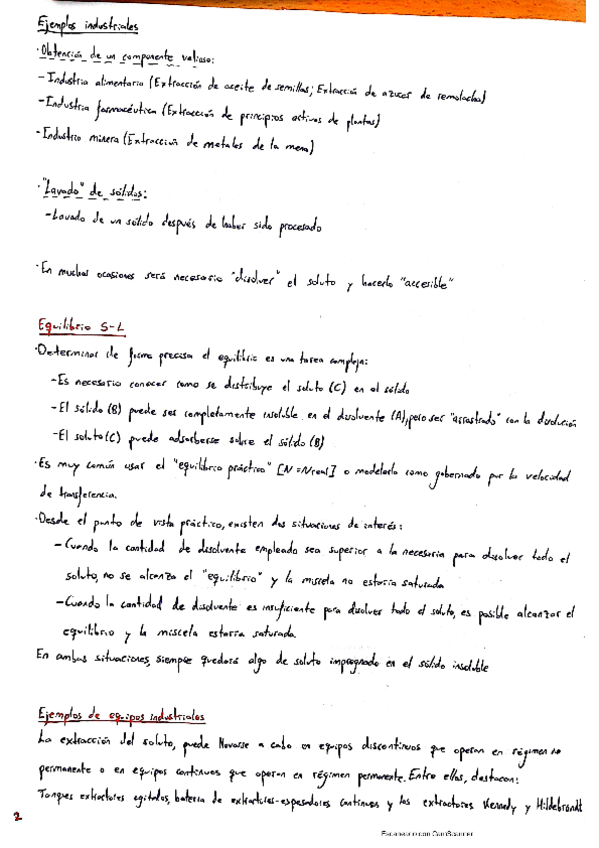 Ejemplos industriales
·Obtención de un componente valioso:
-Industria alimentaria (Extracción de aceite de semillas; Extracción de azúcar de remolacha)
-Industria farmacéutica (Extracción de principios activos de plantas)
-Industria minera (Extracción de metales de la mena)
·"Lavado" de sólidos:
-Lavado de un sólido después de haber sido procesado
·En muchas ocasiones será necesario "disolver" el soluto y hacerlo "accesible"
Equilibrio S-L
·Determinar de forma precisa el equilibrio es una tarea compleja:
-Es necesario conocer como se distribuye el soluto (C) en el sólido
-El sólido (B) puede ser completamente insoluble en el disolvente (A), pero ser "arrastrado" con la disolución
-El soluto (C) puede adsorberse sobre el sólido (B)
·Es muy común usar el "equilibrio práctico" [N=Nreal] o modelarlo como gobernado por la velocidad
de transferencia.
·Desde el punto de vista práctico, existen dos situaciones de interés:
-Cuando la cantidad de disolvente empleado sea superior a la necesaria para disolver todo el
soluto, no se alcanza el "equilibrio" y la miscela no estaría saturada
-Cuando la cantidad de disolvente es insuficiente para disolver todo el soluto, es posible alcanzar el
equilibrio y la miscela estaría saturada.
En ambas situaciones, siempre quedará algo de soluto impregnado en el sólido insoluble
Ejemplos de equipos industriales
La extracción del soluto, puede llevarse a cabo en equipos discontinuos que operan en régimen no
permanente o en equipos continuos que operan en régimen permanente. Entre ellos, destacan:
Tanques extractores agitados, batería de extractores-espesadores continuos y los extractores Kennedy y Hildebrandt
2
Escaneado con CamScanner